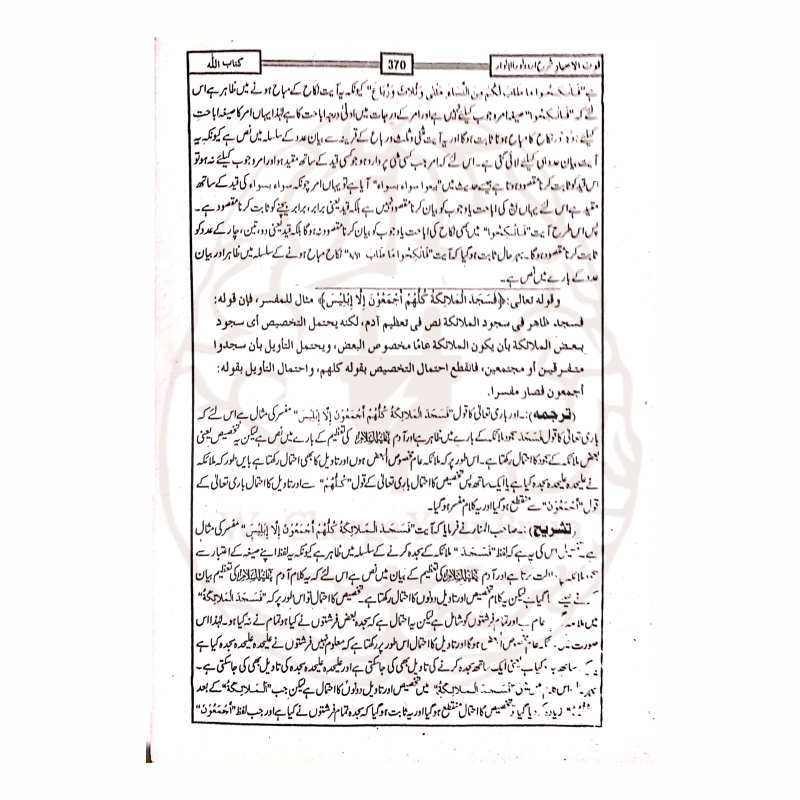 کتاب اللہ 370 شرح اردو نور الانوار
ہے "فَانْکِحُوا مَا طَابَ لَکُمْ مِنَ النِّسَاءِ مَثْنٰی وَثُلَاثَ وَرُبَاعَ" کیونکہ یہ آیت نکاح کے مباح ہونے میں ظاہر ہے اس
لئے کہ "فَانْکِحُوا" صیغہ امر وجوب کیلئے نہیں ہے اور امر کے درجات میں ادنیٰ درجہ اباحت کا ہے لہٰذا یہاں امر کا صیغہ اباحت
کیلئے نکاح کا مباح ہونا ثابت ہوگا اور یہ آیت مثنی وثلث ورباع کے قرینہ سے بیان عدد کے سلسلہ میں نص ہے کیونکہ یہ
آیت بیان عدد ہی کیلئے لائی گئی ہے۔ اس لئے کہ امر جب کسی شئ پر وارد ہو جو کسی قید کے ساتھ مقید ہو اور امر وجوب کیلئے نہ ہو تو
اس قید کو ثابت کرنا مقصود ہوتا ہے جیسے حدیث میں "بیعوا سواء بسواء" آیا ہے تو یہاں امر چونکہ سواء بسواء کی قید کے ساتھ
مقید ہے اس لئے یہاں بیع کی اباحت یا وجوب کو بیان کرنا مقصود نہیں ہے بلکہ قید یعنی برابر، برابر بیچنے کو ثابت کرنا مقصود ہے۔
پس اسی طرح آیت "فَانْکِحُوا" میں بھی نکاح کی اباحت یا وجوب کو بیان کرنا مقصود نہ ہوگا بلکہ قید یعنی دو، تین، چار کے عدد کو
ثابت کرنا مقصود ہوگا۔ بہر حال ثابت ہوگیا کہ آیت "فَانْکِحُوا مَا طَابَ الآیۃ" نکاح مباح ہونے کے سلسلہ میں ظاہر اور بیان
عدد کے بارے میں نص ہے۔
وقوله تعالى: ﴿فَسَجَدَ الْمَلَائِكَةُ كُلُّهُمْ أَجْمَعُوْنَ إِلَّا إِبْلِيْسَ﴾ مثال للمفسر، فإن قوله:
فسجد ظاهر في سجود الملائكة نص في تعظيم آدم، لكنه يحتمل التخصيص أى سجود
بعض الملائكة بأن يكون الملائكة عامًا مخصوص البعض، ويحتمل التأويل بأن سجدوا
متفرقين أو مجتمعين، فانقطع احتمال التخصيص بقوله كلهم، واحتمال التأويل بقوله:
أجمعون فصار مفسرا.
(ترجمہ):۔ اور باری تعالیٰ کا قول "فَسَجَدَ الْمَلَائِكَةُ كُلُّهُمْ أَجْمَعُوْنَ إِلَّا إِبْلِيْسَ" مفسر کی مثال ہے اس لئے کہ
باری تعالیٰ کا قول فسجد سجود ملائکہ کے بارے میں ظاہر ہے اور آدم علیہ السلام کی تعظیم کے بارے میں نص ہے لیکن یہ تخصیص یعنی
بعض ملائکہ کے سجود کا احتمال رکھتا ہے۔ اس طور پر کہ ملائکہ عام مخصوص البعض ہوں اور تاویل کا بھی احتمال رکھتا ہے بایں طور کہ ملائکہ
نے علیحدہ علیحدہ سجدہ کیا ہے یا ایک ساتھ پس تخصیص کا احتمال باری تعالیٰ کے قول "كُلُّهُمْ" سے اور تاویل کا احتمال باری تعالیٰ کے
قول "أَجْمَعُوْنَ" سے منقطع ہوگیا اور یہ کلام مفسر ہوگیا۔
(تشریح):۔ صاحب المنار نے فرمایا کہ آیت "فَسَجَدَ الْمَلَائِكَةُ كُلُّهُمْ أَجْمَعُوْنَ إِلَّا إِبْلِيْسَ" مفسر کی مثال
ہے۔ تفصیل اس کی یہ ہے کہ لفظ "فَسَجَدَ" ملائکہ کے سجدہ کرنے کے سلسلہ میں ظاہر ہے کیونکہ یہ لفظ اپنے صیغہ کے اعتبار سے
دلالت کرتا ہے اور آدم علیہ السلام کی تعظیم کے بیان میں نص ہے اس لئے کہ یہ کلام آدم علیہ السلام کی تعظیم بیان
کرنے کیلئے لایا گیا ہے لیکن یہ کلام تخصیص اور تاویل دونوں کا احتمال رکھتا ہے۔ تخصیص کا احتمال تو اس طور پر کہ "فَسَجَدَ الْمَلَائِكَةُ"
میں ملائکہ عام ہے اور تمام فرشتوں کو شامل ہے لیکن یہ احتمال ہے کہ سجدہ بعض فرشتوں نے کیا ہو تمام نے نہ کیا ہو۔ لہٰذا اس
صورت میں عام مخصوص البعض ہوگا اور تاویل کا احتمال اس طور پر رکھتا ہے کہ معلوم نہیں فرشتوں نے علیحدہ علیحدہ سجدہ کیا ہے
ساتھ سجدہ کیا ہے یعنی ایک ساتھ سجدہ کرنے کی تاویل بھی کی جاسکتی ہے اور علیحدہ علیحدہ سجدہ کی تاویل بھی کی جاسکتی ہے۔
"فَسَجَدَ الْمَلَائِكَةُ" میں تخصیص اور تاویل دونوں کا احتمال ہے لیکن جب "اَلْمَلَائِكَةُ" کے بعد
زیادہ کر دیا گیا تو تخصیص کا احتمال منقطع ہوگیا اور یہ ثابت ہوگیا کہ سجدہ تمام فرشتوں نے کیا ہے اور جب لفظ "أَجْمَعُوْنَ"